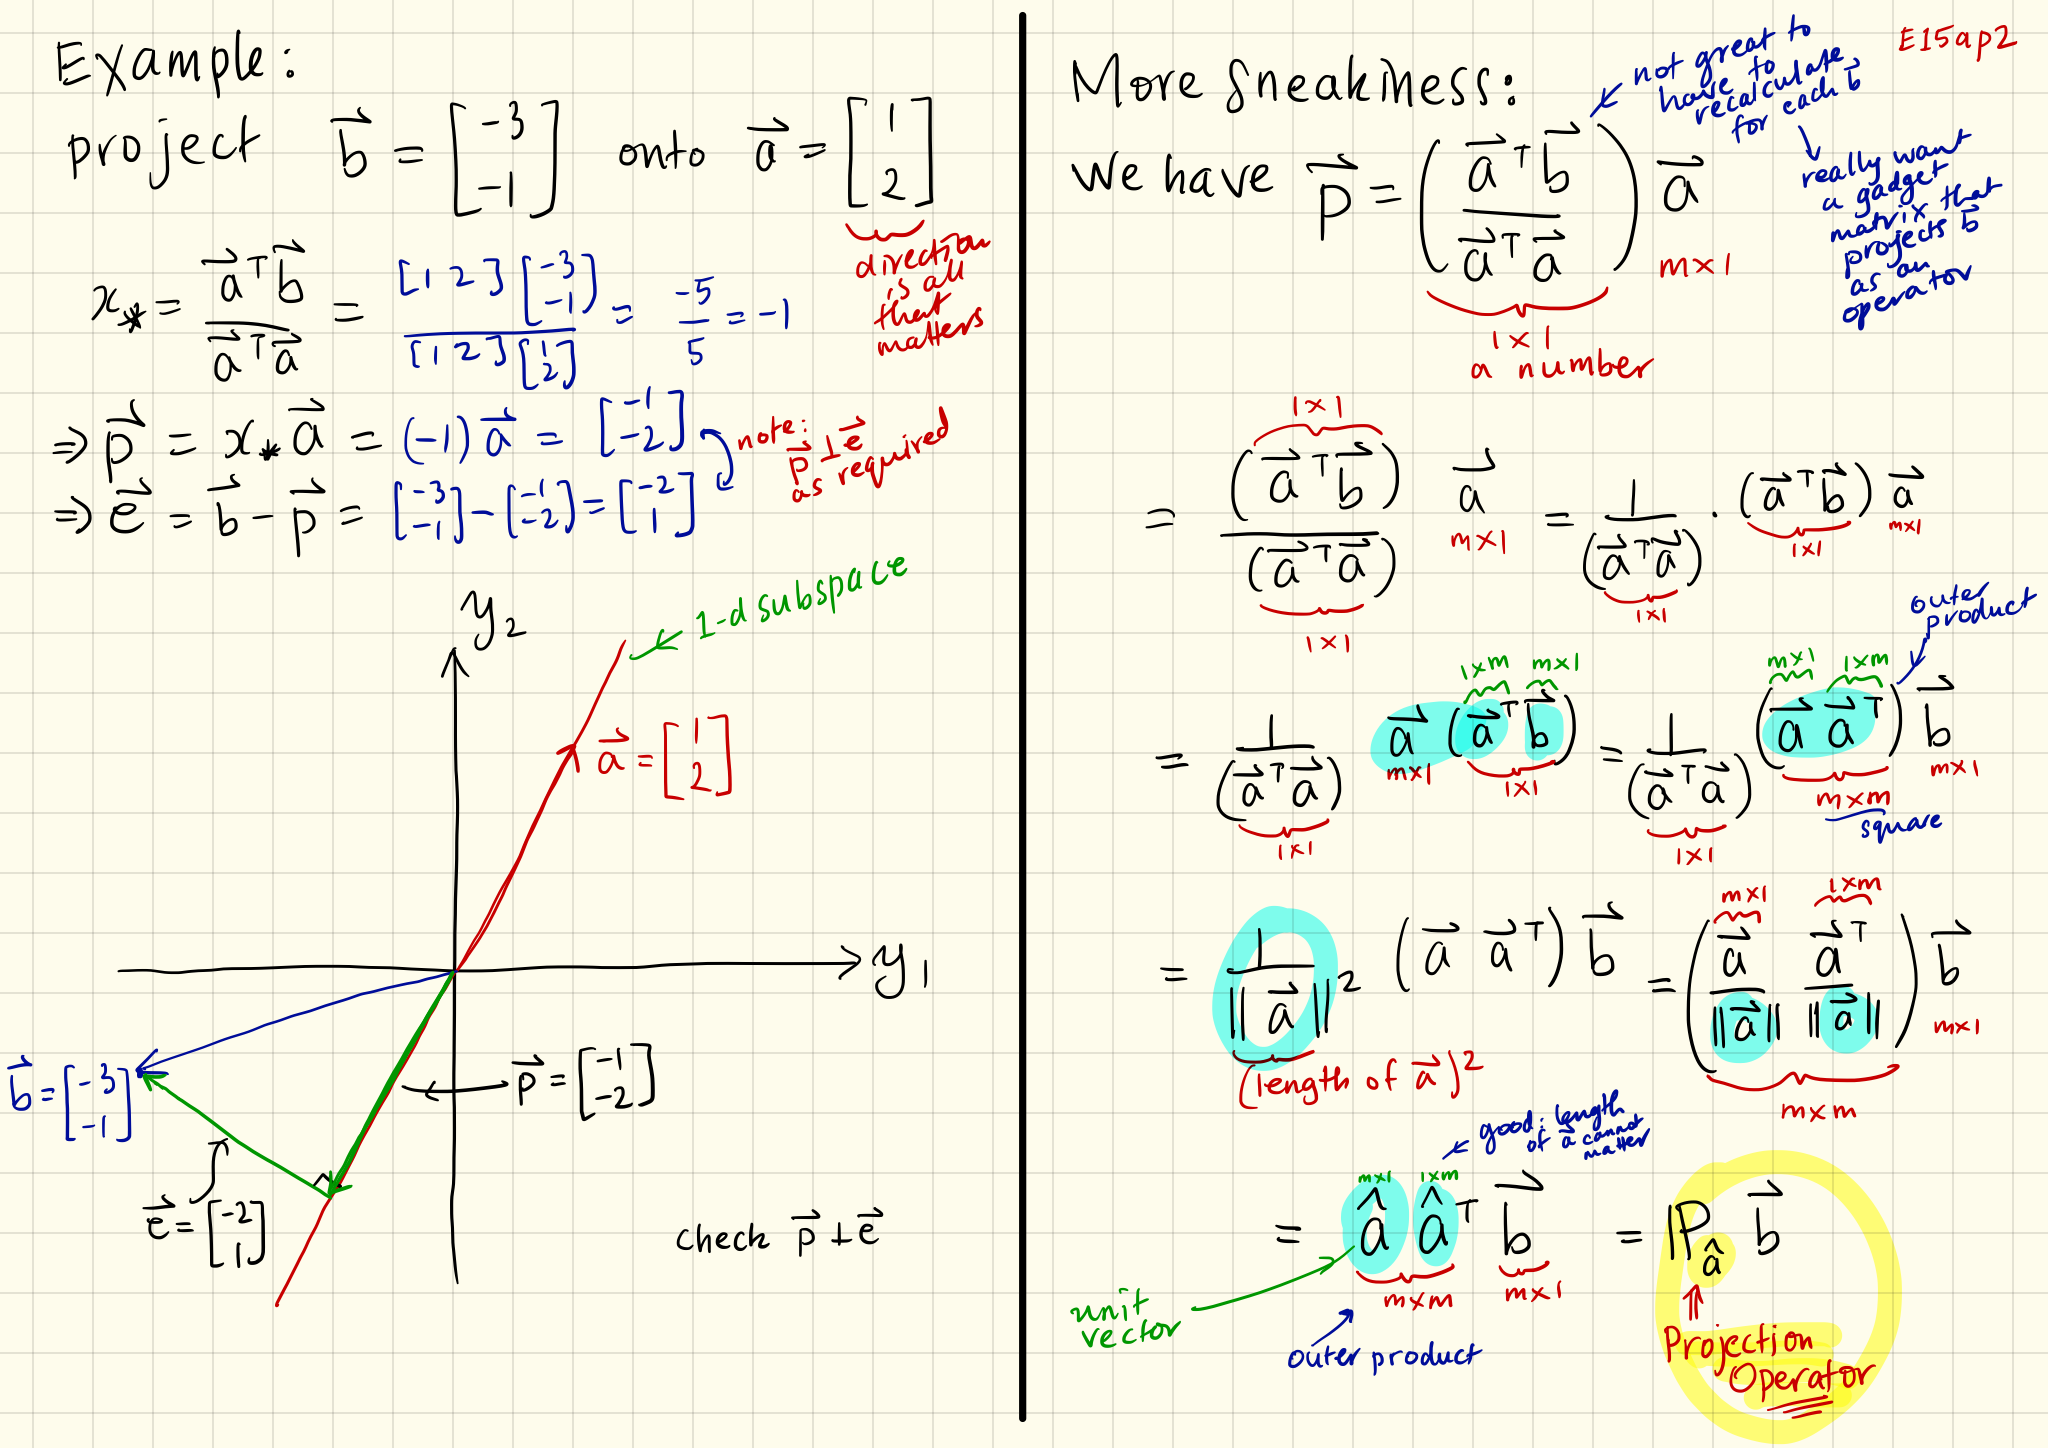 Example:
project b⃗ = [-3 -1] onto a⃗ = [1 2]
direction is all that matters
x_* = a⃗ᵀb⃗ / a⃗ᵀa⃗ = [1 2][-3 -1] / [1 2][1 2] = -5/5 = -1
⇒ p⃗ = x_* a⃗ = (-1) a⃗ = [-1 -2]
⇒ e⃗ = b⃗ - p⃗ = [-3 -1] - [-1 -2] = [-2 1]
note:
p⃗ ⊥ e⃗
as required
y₂
1-d subspace
a⃗ = [1 2]
y₁
b⃗ = [-3 -1]
p⃗ = [-1 -2]
e⃗ = [-2 1]
check p⃗ ⊥ e⃗
E15ap2
More sneakiness:
not great to
have to
recalculate
for each b⃗
really want
a gadget
matrix that
projects b⃗
as an
operator
We have p⃗ = (a⃗ᵀb⃗ / a⃗ᵀa⃗) a⃗
m×1
1×1
a number
1×1
= (a⃗ᵀb⃗) / (a⃗ᵀa⃗) a⃗ = 1/(a⃗ᵀa⃗) · (a⃗ᵀb⃗) a⃗
m×1 1×1 m×1
1×1 1×1
outer
product
1×m m×1 m×1 1×m
= 1/(a⃗ᵀa⃗) a⃗ (a⃗ᵀb⃗) = 1/(a⃗ᵀa⃗) (a⃗ a⃗ᵀ) b⃗
m×1 1×1 m×m m×1
square
1×1 1×1
m×1 1×m
= 1/||a⃗||² (a⃗ a⃗ᵀ) b⃗ = (a⃗/||a⃗|| a⃗ᵀ/||a⃗||) b⃗
m×1
(length of a⃗)²
m×m
good: length
of a⃗ cannot
matter
m×1 1×m
= â âᵀ b⃗ = ℙ_â b⃗
m×m m×1
unit
vector
outer product
Projection
Operator